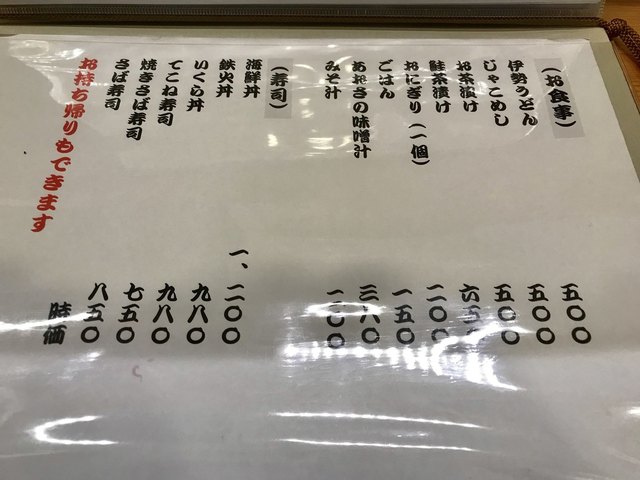 （お食事）
伊勢うどん 五〇〇
じゃこめし 五〇〇
お茶漬け 五〇〇
鮭茶漬け 六五〇
おにぎり（一個） 二〇〇
ごはん 一五〇
あおさの味噌汁 三八〇
みそ汁
（寿司）
海鮮丼 一、二〇〇
鉄火丼 九八〇
いくら丼 九八〇
てこね寿司 七五〇
焼きさば寿司 八五〇
さば寿司 時価
お持ち帰りもできます